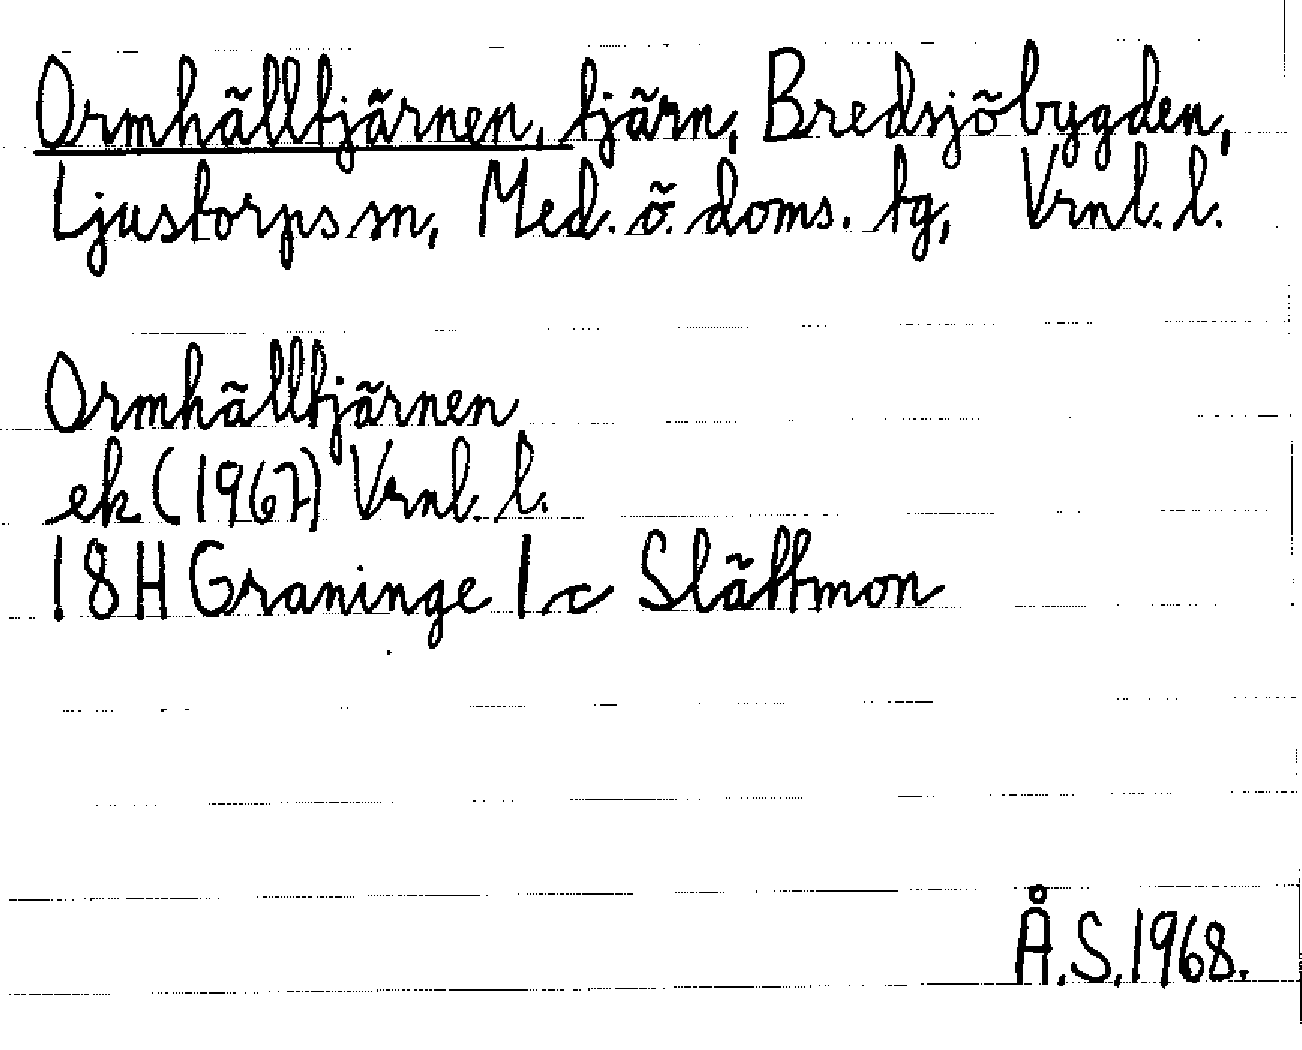 Ormhälltjärnen, tjärn, Bredsjöbygden,
Ljustorps sn, Med. ö. doms. tg, Vrnl. l.
Ormhälltjärnen
ek (1967) Vrnl. l.
18H Graninge 1c Slättmon
Å.S. 1968.